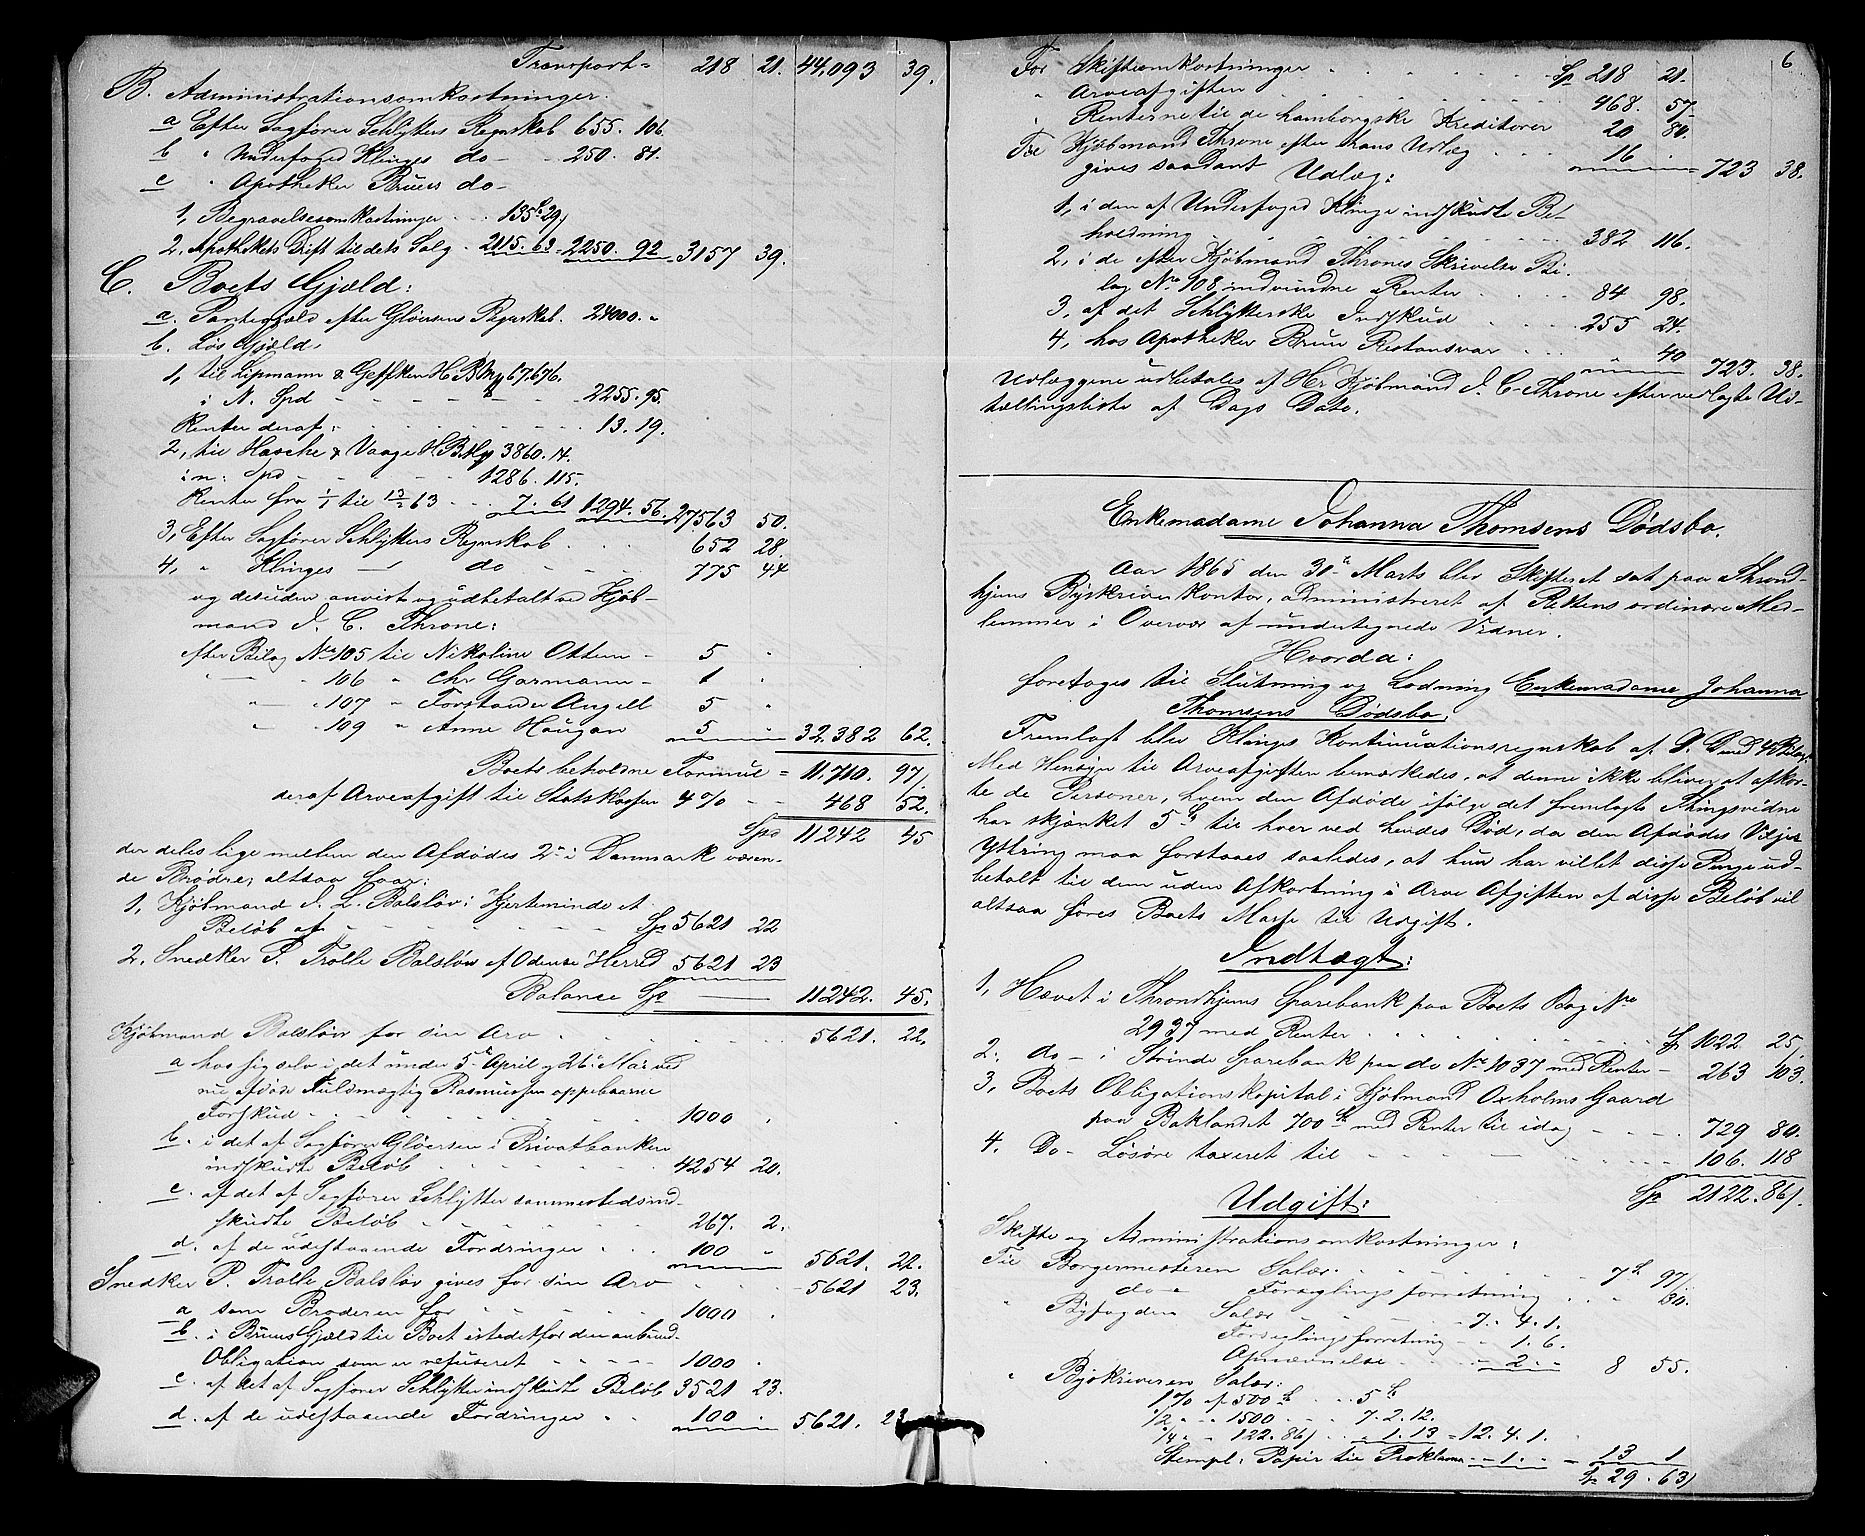 Transport = 218 21. 44,093 39.
B. Administrationsomkostninger:
a Efter Sagfører Schlytters Regnskab 655. 106.
b " Underfoged Klinges do - 250. 81.
c " Apotheker Bruns do -
1, Begravelsesomkostninger . . 135. 29/
2, Apothekets Drift til dets Salg . 2115. 63 = 2250. 92 3157 39.
C. Boets Gjæld:
a. Pantegjæld efter Gløersens Regnskab. 24000. "
b. Løs Gjæld:
1, til Lipmann & Geffken H. B. Mk 67,676.
i N. Spd - - - - - - 2255. 95.
Renter deraf: . . . . . . . 13. 19.
2, til Hasche & Vaage H B Mk 3860. 14.
i n: Spd - - - - 1286. 115.
Renter fra 1/1 til 13/2 63 . . . 7. 61 1294. 56. 27563 50.
3, Efter Sagfører Schlytters Regnskab . . . 652 28.
4, " Klinges — do - - - 775 44
og desuden anvist og udbetalt ved Kjøb-
mand J. C. Throne:
efter Bilag No 105 til Nikoline Ottem - 5 "
" — " 106 " Chr Garmann - 1 .
" — " 107 " Forstander Angell 5 "
" " 109 " Anne Haugan 5 " 32.382 62.
Boets beholdne Formue = 11,710. 97/
deraf Arveafgift til Statskassen 4% - - 468 52.
Spd 11242 45
der deles lige mellem den Afdødes 2de i Danmark væren-
de Brødre, altsaa faar:
1, Kjøbmand J. L. Balsløv i Kjerteminde et
Beløb af - - - - - - Sp 5621 22
2, Snedker P. Trolle Balsløv af Odense Herred 5621 23
Balance Sp — 11242. 45.
Kjøbmand Balsløv for sin Arv . . . . . . 5621. 22.
a hos sig selv i det under 5te April og 26de Mai ved
nu afdøde Fuldmægtig Rasmussen oppebaarne
Forskud . . . . . . . . . 1000 .
b. i det af Sagfører Gløersen i Privatbanken
indskudte Beløb . . . . . . 4254 20.
c. af det af Sagfører Schlytter sammesteds ind-
skudte Beløb . . . . . . 267. 2.
d. af de udestaaende Fordringer . . . 100 " 5621. 22.
Snedker P. Trolle Balsløv gives for sin Arv . . - 5621 23.
a som Broderen for . . . . . 1000 .
b. i Bruns Gjæld til Boet istedetfor den anbud.
Obligation som er refuseret - - - - 1000 .
c. af det af Sagfører Schlytter indskudte Beløb 3521 23.
d. af de udestaaende Fordringer . . 100 . 5621. 23
6
For Skifteomkostninger . . . . . . Sp 218 21.
" Arveafgiften . . . . . . . . 468. 57.
" Renterne til de hamborgske Kreditorer 20 80.
Til Kjøbmand Throne efter hans Udlæg . . . 16 . 723 38.
gives saadant Udlæg:
1, i den af Underfoged Klinge indskudte Be-
holdning . . . . . . . . . 382 116.
2, i de efter Kjøbmand Thrones Skrivelse Bi-
lag No 108 indvundne Renter . . . . 84 98.
3, af det Schlytterske Indskud . . . . 255 24.
4, hos Apotheker Brun Restansvar . . . " 40 723. 38.
Udlæggene udbetales af Hr Kjøbmand J. C. Throne efter vedlagte Ud-
tællingsliste af Dags Dato.
Enkemadame Johanna Thomsens Dødsbo.
Aar 1865 den 31te Marts blev Skifteret sat paa Thrond-
hjems Byskriverkontor, administreret af Rettens ordinære Med-
lemmer i Overvær af undertegnede Vidner.
Hvorda:
foretoges til Slutning og Lodning Enkemadame Johanna
Thomsens Dødsbo.
Fremlagt blev Klinges Kontinuationsregnskab af D. D. med 45 Bilag.
Med Hensyn til Arveafgiften bemærkedes, at denne ikke bliver at afkor-
te de Personer, hvem den Afdøde ifølge det fremlagte Thingsvidne
har skjænket 5 Sp til hver ved hendes Død, da den Afdødes Viljes
Yttring maa forstaaes saaledes, at hun har villet disse Penge ud-
betalt til dem uden Afkortning i Arve Afgiften af disse Beløb vil
altsaa føres Boets Masse til Udgift.
Indtægt:
1, Hævet i Throndhjems Sparebank paa Boets Bog No
2937 med Renter . . . . . . . Sp 1022 25,
2. do - i Strinde Sparebank paa do No 1037 med Renter - 263 103.
3, Boets Obligationskapital i Kjøbmand Oxholms Gaard
paa Baklandet 700 Sp med Renter til idag - - - 729 80.
4. Do - Løsøre taxeret til - - - - - - 106. 118
Sp 2122. 86/
Udgift:
Skifte og Administrationsomkostninger:
Til Borgermesteren Salær. . . . . . . 7 Sp 97/
do - Forseglingsforretning . . " 80.
" Byfogden Salær - - - - 7. 4. 1.
Forseglingsforretning - - 1. 6.
Opnævnelse . . . . 2. - 8 55.
" Byskriveren Salær:
1 % af 500 Sp . . . 5 Sp
1/2 " " 1500 . . . 7. 2. 12.
1/4 " " 122. 86/ . . 1. 13 = 12. 4. 1.
Stempl: Papir til Proklama - - 1. . - 13 1
Sp 29. 63/